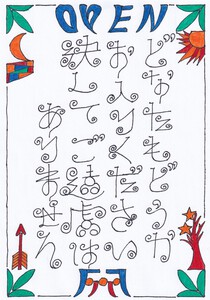 OPEN
どなたもどうか
お入りください
決してご遠慮は
ありません